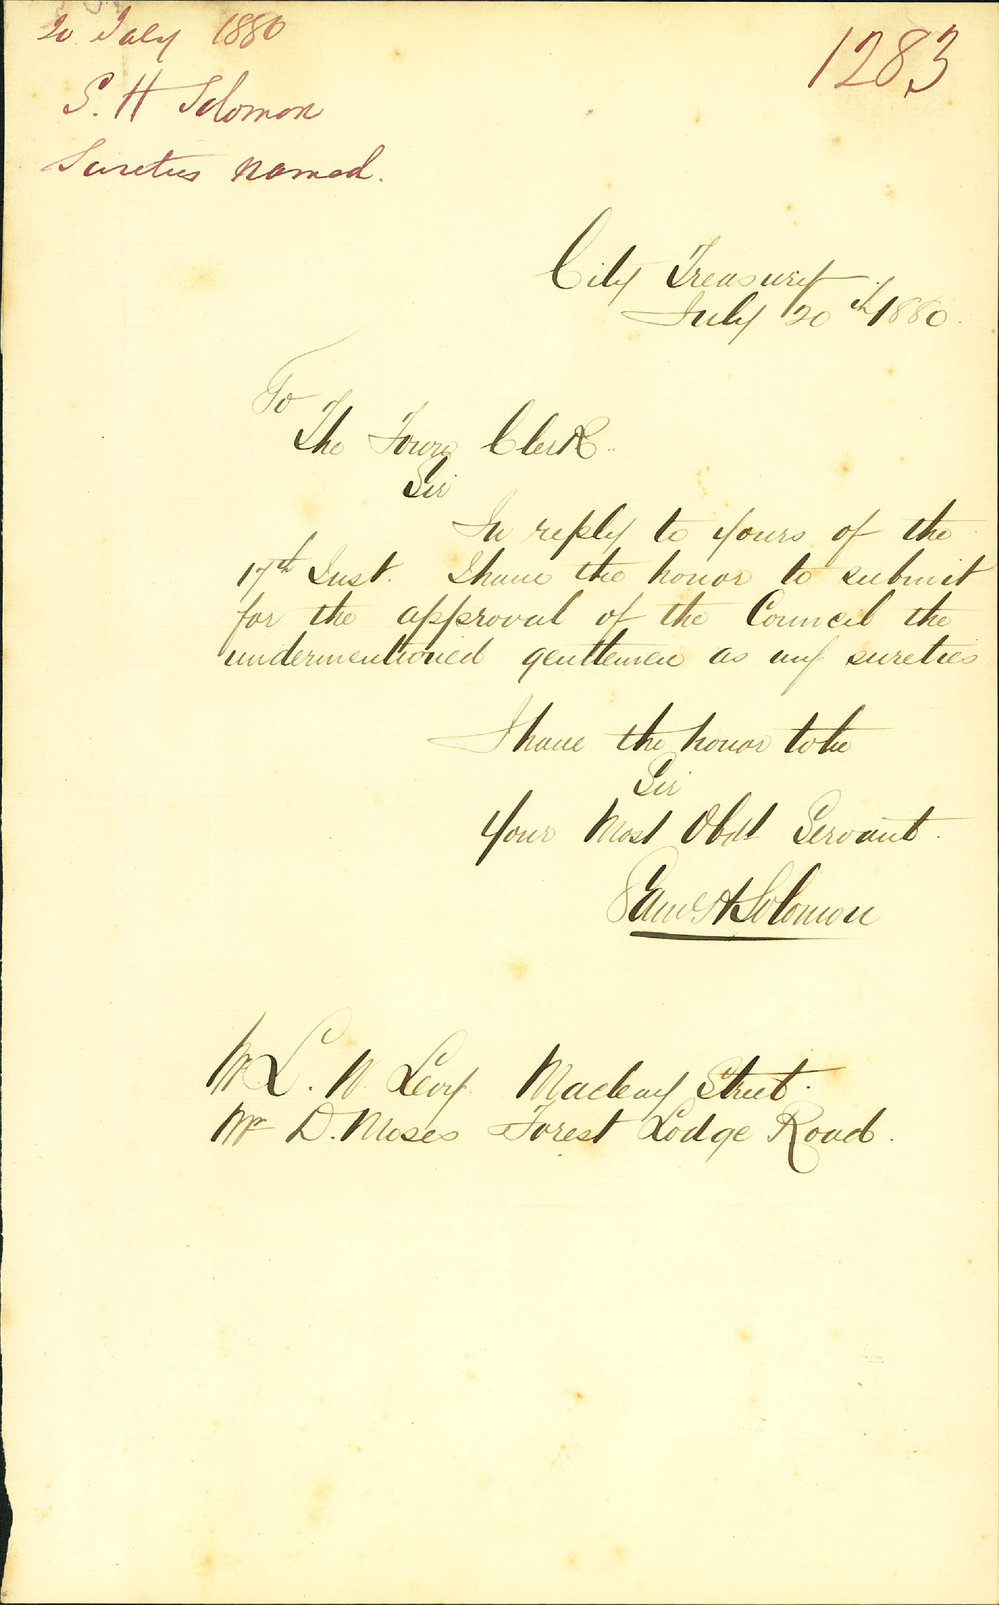 20 July 1880
S. H Solomon
Sureties named.
1283
City Treasury
July 20th 1880.
To
The Town Clerk.
Sir
In reply to yours of the
17th Inst. I have the honor to submit
for the approval of the Council the
undermentioned gentlemen as my sureties
I have the honor to be
Sir
Your Most Obdt Servant.
Saml H Solomon
Mr L. N. Levy. Macleay Street.
Mr D. Moses Forest Lodge Road.